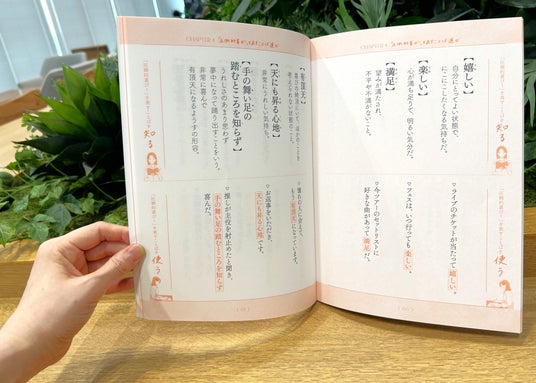 【嬉しい】
自分にとってよい状態で、
にこにこしたくなる気持ちだ。
【楽しい】
心が満ち足りて、明るい気分だ。
【満足】
望みが満たされ、
不平や不満がないこと。
知る
♡ライブのチケットが当たって嬉しい。
♡フェスは、いつ行っても楽しい。
♡今ツアーのセットリストに
好きな曲があって満足だ。
使う
CHAPTER 4
【有頂天】
【天にも昇る心地】
非常にうれしい気持ち。
【手の舞い足の
踏むところを知らず】
うれしさのあまり思わず
夢中になって踊り出すことをいう。
非常に喜んで
有頂天になるようすの形容。
知る
♡憧れの人に会えて、
もう有頂天になっています。
♡お返事をいただき、
天にも昇る心地です。
♡推しが主役を射止めたと聞き、
手の舞い足の踏むところを知らず
喜んだ。
使う
CHAPTER 4